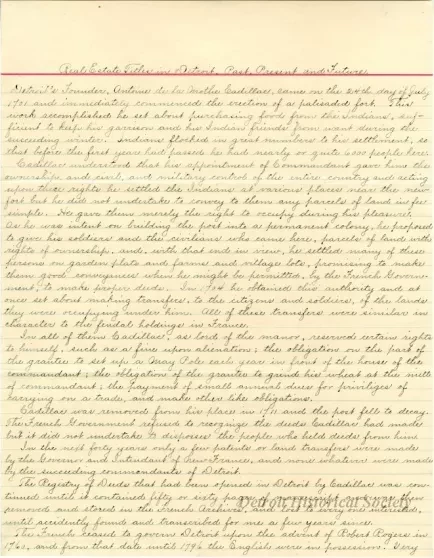 Real Estate Titles in Detroit, Past, Present and Future.
Detroit's Founder, Antoine de la Mothe Cadillac, came on the 24th day of July
1701 and immediately commenced the erection of a palisaded fort. This
work accomplished he set about purchasing food from the Indians, suf-
ficient to keep his garrison and his Indian friends from want during the
succeeding winter. Indians flocked in great numbers to his settlement, so
that before the first year had passed he had nearly or quite 6000 people here.
Cadillac understood that his appointment of Commandant gave him the
ownership and civil, and military control of the entire country and acting
upon these rights he settled the Indians at various places near the new
fort but he did not undertake to convey to them any parcels of land in fee
simple. He gave them merely the right to occupy during his pleasure.
As he was intent on building the port into a permanent colony, he proposed
to give his soldiers and the civilians who came here, parcels of land with
rights of ownership, and, with that end in view, he settled many of these
persons on garden plats and farms and village lots, promising to make
them good conveyances when he might be permitted, by the French Govern-
ment, to make proper deeds. In 1704 he obtained this authority and at
once set about making transfers, to the citizens and soldiers, of the lands
they were occupying under him. All of these transfers were similar in
character to the feudal holdings in France.
In all of them Cadillac, as lord of the manor, reserved certain rights
to himself, such as a fine upon alienation; the obligation on the part of
the grantee to set up a May Pole each year in front of the house of the
commandant; the obligation of the grantee to grind his wheat at the mill
of commandant; the payment of small annual dues for priviliges of
carrying on a trade, and make other like obligations.
Cadillac was removed from his place in 1711 and the post fell to decay.
The French Government refused to recognize the deeds Cadillac had made
but it did not undertake to disposess the people who held deeds from him.
In the next forty years only a few patents or land transfers were made
by the Governor and Intendant of New France, and none whatever were made
by the succeeding commandants of Detroit.
The Registry of Deeds that had been opened in Detroit by Cadillac was con-
tinued until it contained fifty or sixty pages
removed and stored in the French Archives, and lost to every one
until accidently found and transcribed for me a few years since.
The French ceased to govern Detroit upon the advent of Robert Rogers in
1760, and from that date until 1796 the English were in possession. Very
Detroit Historical Society